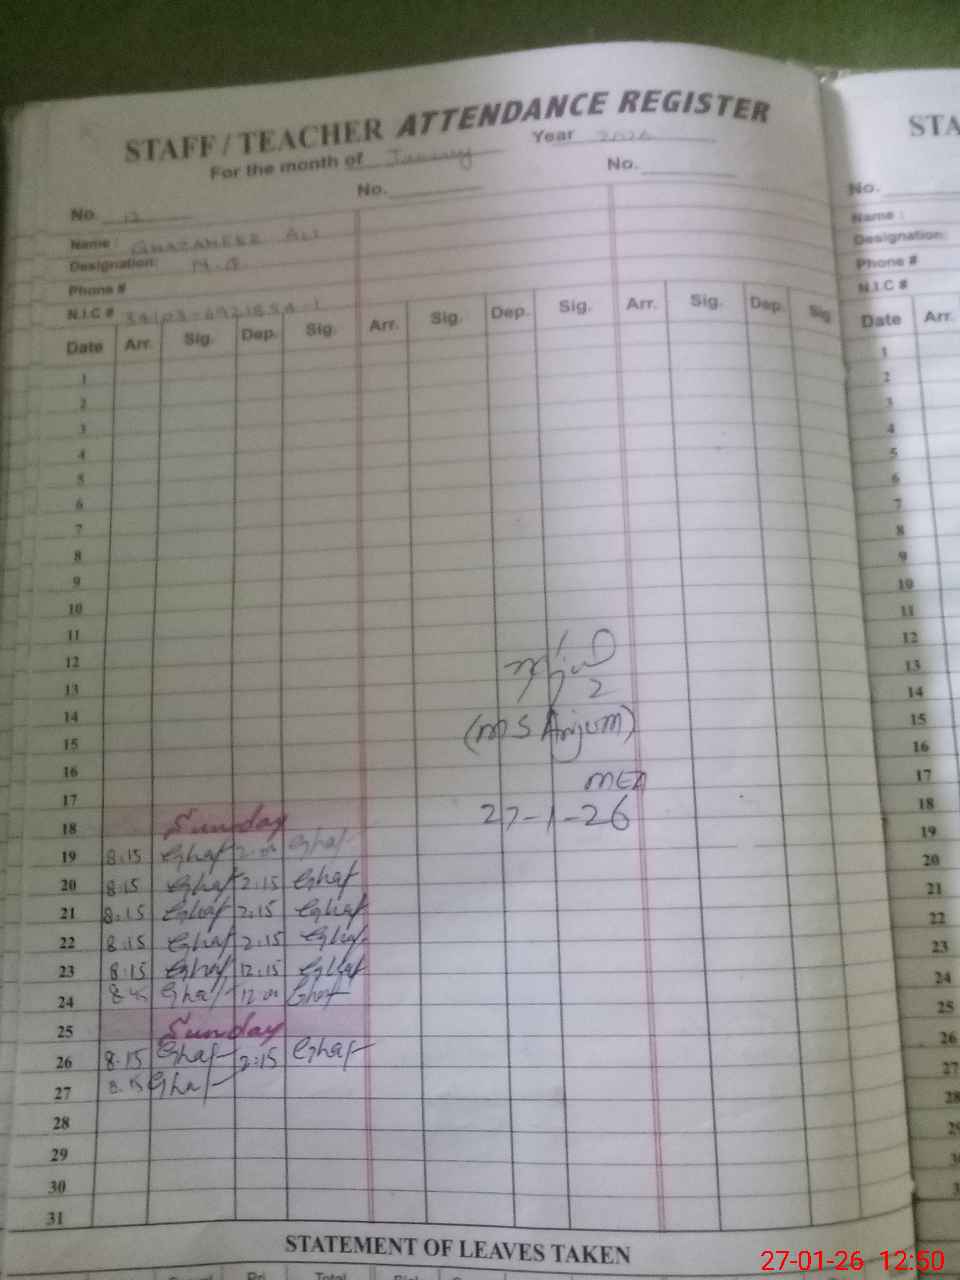 STAFF / TEACHER ATTENDANCE REGISTER
For the month of January Year 2026
No. 12 No. No.
Name : GHAZANFER ALI
Designation:
Phone #
N.I.C #
Date Arr. Sig. Dep. Sig. Arr. Sig. Dep. Sig. Arr. Sig. Dep. Sig
1
2
3
4
5
6
7
8
9
10
11
12
13
14
15
16
17
18 Sunday
19 8.15 Ghaf 2.00 Ghaf
20 8.15 Ghaf 2.15 Ghaf
21 8.15 Ghaf 2.15 Ghaf
22 8.15 Ghaf 2.15 Ghaf
23 8.15 Ghaf 12.15 Ghaf
24 Ghaf 12.00 Ghaf
25 Sunday
26 8.15 Ghaf 2.15 Ghaf
27 8.15 Ghaf
28
29
30
31
(MS Anjum)
MEA
27-1-26
STATEMENT OF LEAVES TAKEN
Total
STA
No.
Name :
Designation:
Phone #
N.I.C #
Date Arr.
1
2
3
4
5
6
7
8
9
10
11
12
13
14
15
16
17
18
19
20
21
22
23
24
25
26
27
28
27-01-26 12:50